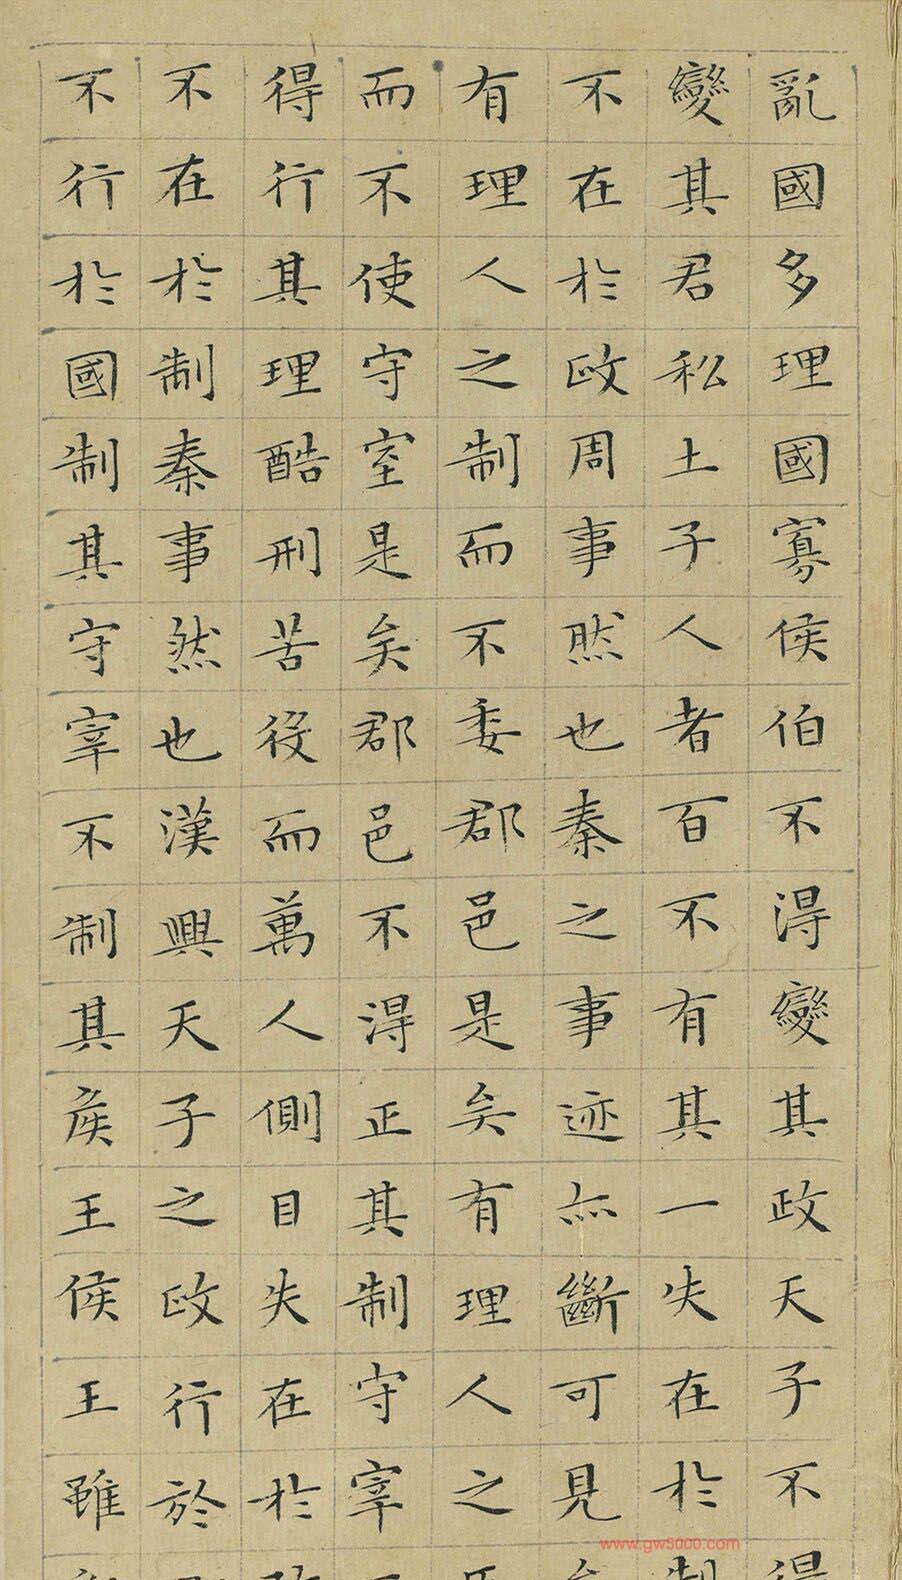 亂國多理國寡侯伯不得變其政天子不得
變其君私土子人者百不有其一失在於制
不在於政周事然也秦之事迹亦斷可見
有理人之制而不委郡邑是矣有理人之
而不使守室是矣郡邑不得正其制守宰
得行其理酷刑苦役而萬人側目失在於
不在於制秦事然也漢興天子之政行於
不行於國制其守宰不制其侯王侯王雖
www.gw5000.com